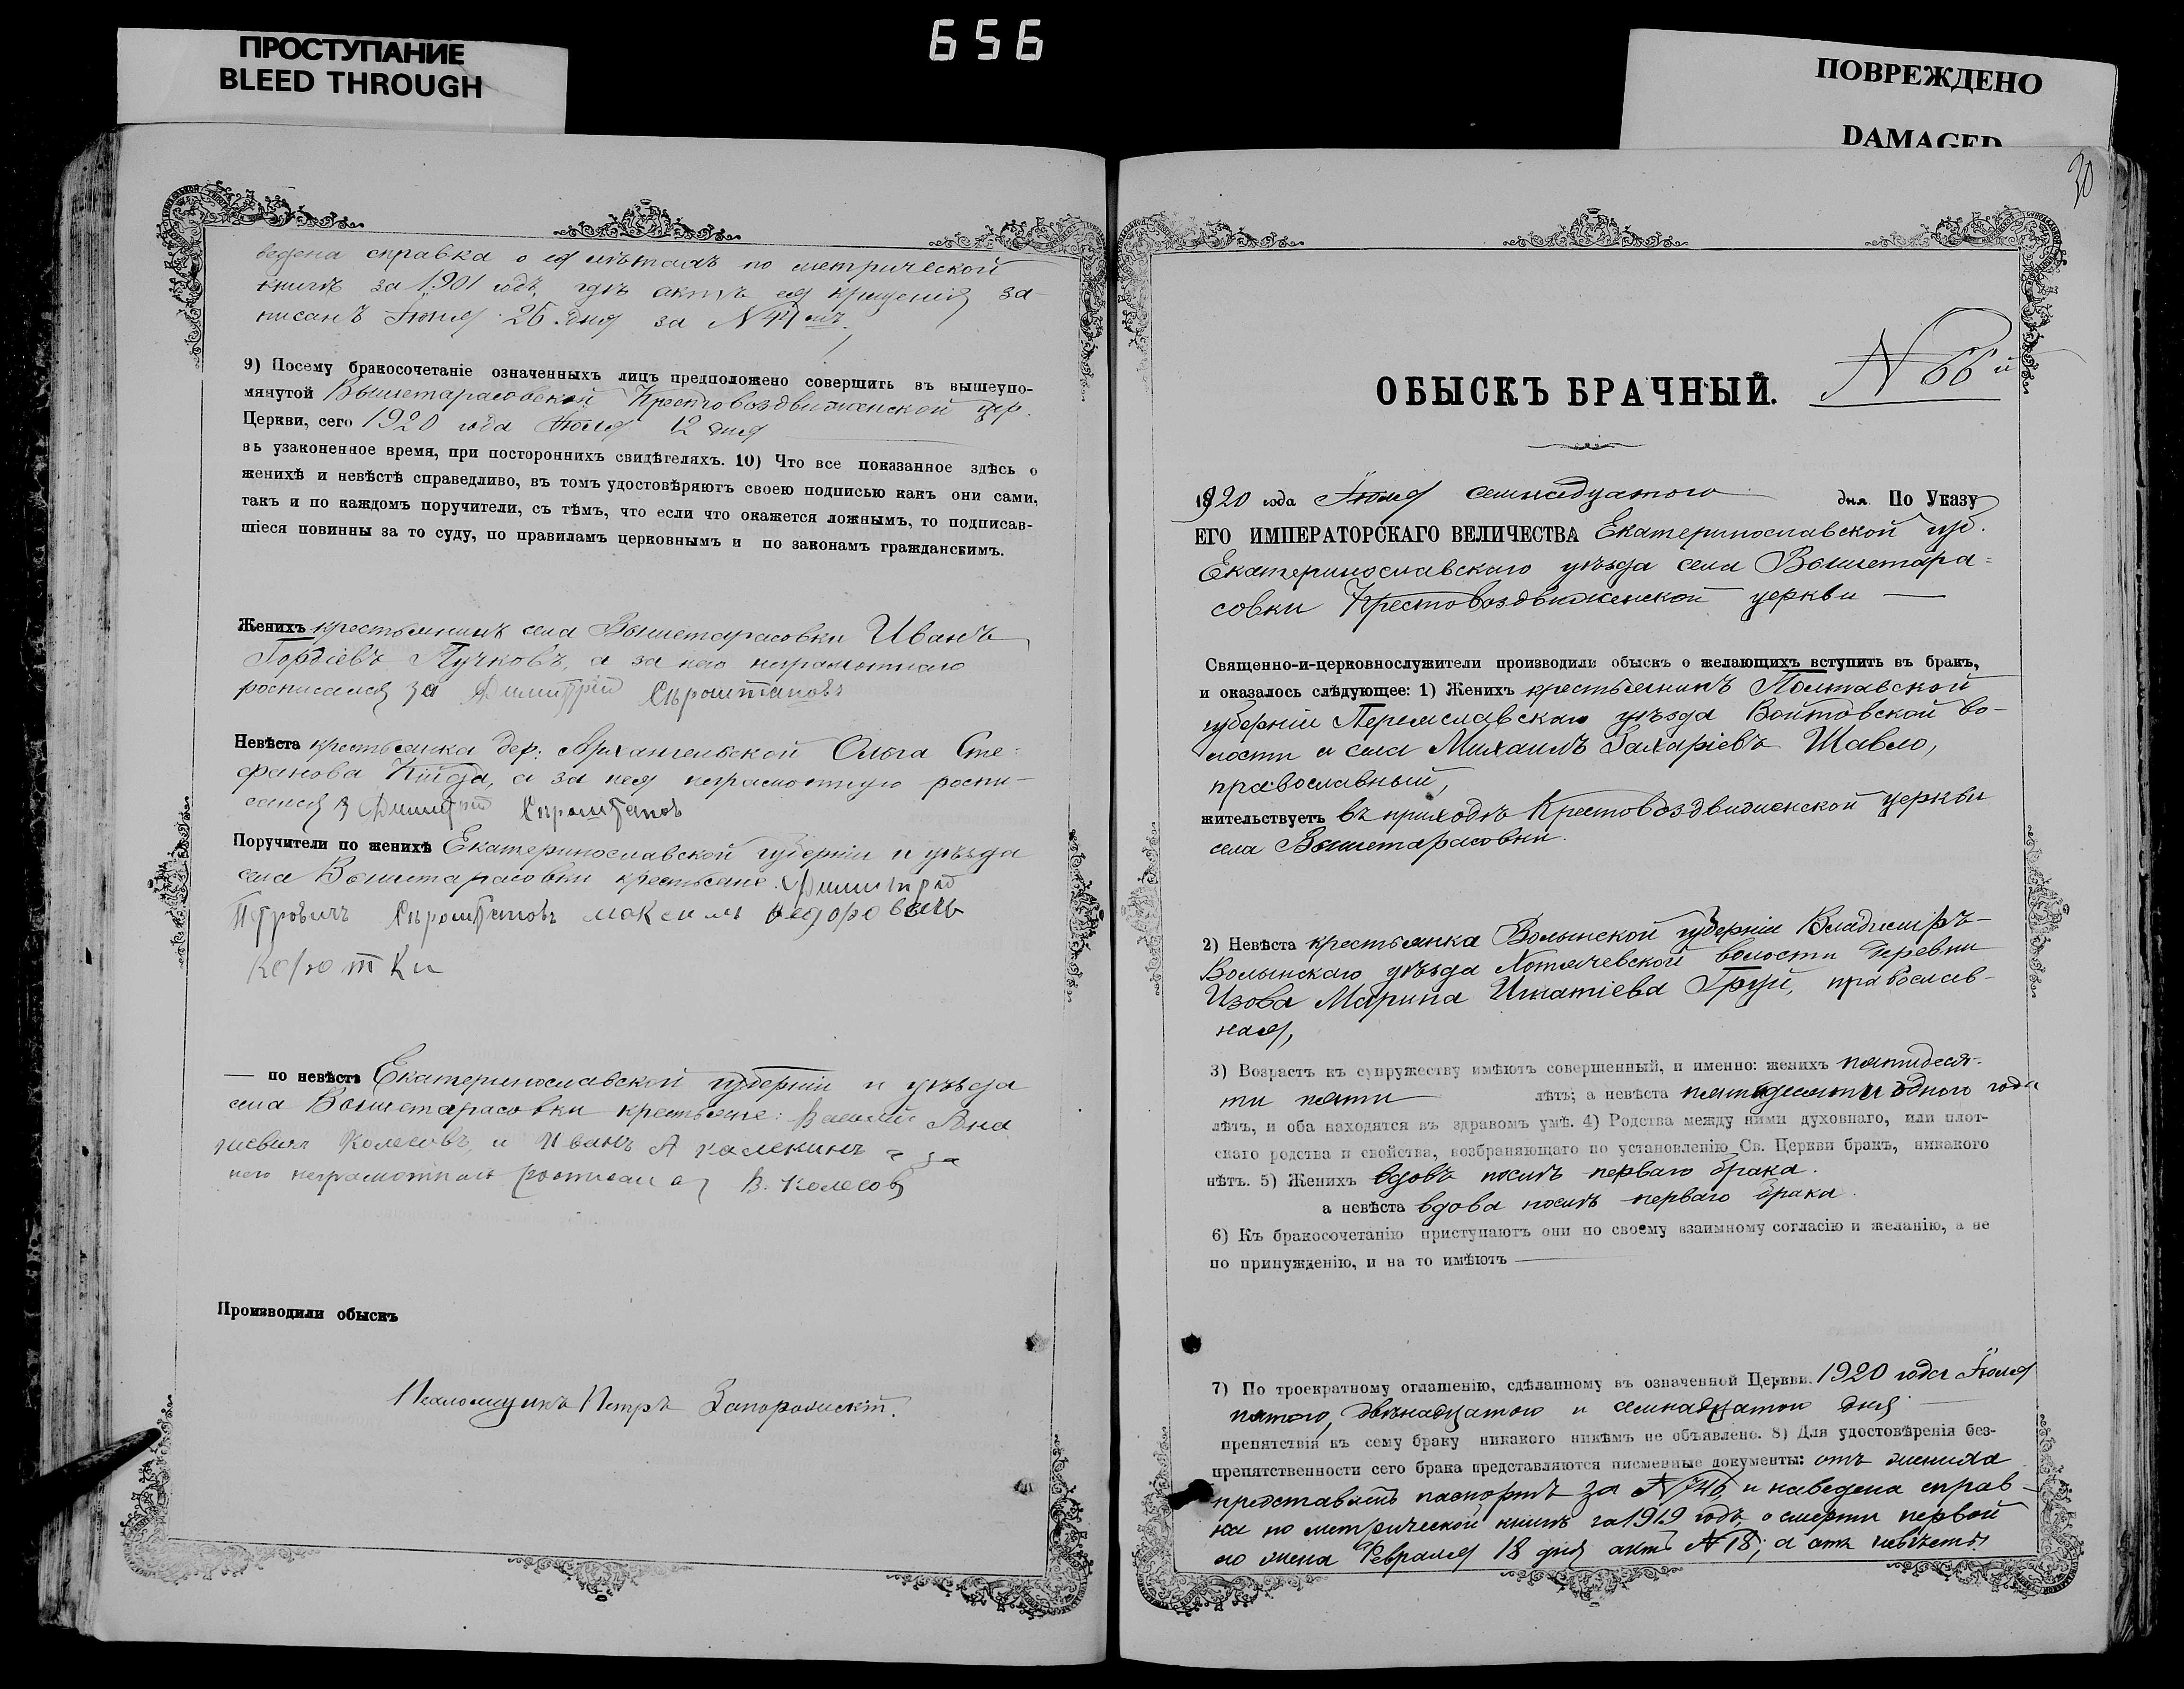 ПРОСТУПАНИЕ
BLEED THROUGH
656
ПОВРЕЖДЕНО
DAMAGED
ведена справка о ея лѣтахъ по метрической
книгѣ за 1901 годъ, гдѣ актъ ея крещенія за-
писанъ Іюля 26 дня за N 44
9) Посему бракосочетаніе означенныхъ лицъ предположено совершить въ вышеупо-
мянутой Вышетарасовской Крестовоздвиженской цер.
Церкви, сего 1920 года Іюля 12 дня
въ узаконенное время, при постороннихъ свидѣтеляхъ. 10) Что все показанное здѣсь о
женихѣ и невѣстѣ справедливо, въ томъ удостовѣряютъ своею подписью какъ они сами,
такъ и по каждомъ поручители, съ тѣмъ, что если что окажется ложнымъ, то подписав-
шіеся повинны за то суду, по правиламъ церковнымъ и по законамъ гражданскимъ.
Женихъ крестьянинъ села Вышетарасовки Иванъ
Гордіевъ Пучковъ, а за него неграмотнаго
росписался за Димитрій Сыроштановъ
Невѣста крестьянка дер. Архангельской Ольга Сте-
фанова, а за нея неграмотную роспи-
сался Димитрій Сыроштановъ
Поручители по женихѣ Екатеринославской губерніи и уѣзда
села Вышетарасовки крестьяне: Димитрій
Петровичъ Сыроштановъ Максимъ Федоровичъ
Коротки
— по невѣстѣ Екатеринославской губерніи и уѣзда
села Вышетарасовки крестьяне: Василій
Колесовъ, и Иванъ а за
него неграмотнаго росписался В. Колесов
Производили обыскъ
Псаломщикъ Петръ Запорожскій.
30
N 66й
ОБЫСКЪ БРАЧНЫЙ.
1920 года Іюля семнадцатого дня По Указу
ЕГО ИМПЕРАТОРСКАГО ВЕЛИЧЕСТВА Екатеринославской губ.
Екатеринославскаго уѣзда села Вышетара=
совки Крестовоздвиженской церкви —
Священно-и-церковнослужители производили обыскъ о желающихъ вступить въ бракъ,
и оказалось слѣдующее: 1) Женихъ крестьянинъ Полтавской
губерніи Переяславскаго уѣзда Войтовской во-
лости и села Михаилъ Захаріевъ Шавло,
православный,
жительствуетъ въ приходѣ Крестовоздвиженской церкви
села Вышетарасовки.
2) Невѣста крестьянка Волынской губерніи Владиміръ-
Волынскаго уѣзда Хотячевской волости деревни
Изова Марина Игнатіева Груй, православ-
ная,
3) Возрастъ къ супружеству имѣютъ совершенный, и именно: женихъ пятидеся-
ти пяти лѣтъ; а невѣста пятидесяти одного года
лѣтъ, и оба находятся въ здравомъ умѣ. 4) Родства между ними духовнаго, или плот-
скаго родства и свойства, возбраняющаго по установленію Св. Церкви бракъ, никакого
нѣтъ. 5) Женихъ вдовъ послѣ перваго брака.
а невѣста вдова послѣ перваго брака.
6) Къ бракосочетанію приступаютъ они по своему взаимному согласію и желанію, а не
по принужденію, и на то имѣютъ —
7) По троекратному оглашенію, сдѣланному въ означенной Церкви 1920 года Іюля
пятого, двѣнадцатого и семнадцатого дня
препятствія къ сему браку никакого никѣмъ не объявлено. 8) Для удостовѣренія без-
препятственности сего брака представляются писменные документы: отъ жениха
представленъ паспортъ за N 746 и наведена справ-
ка по метрической книгѣ за 1919 годъ, о смерти первой
его жены Февраля 18 дня актъ N 18; а отъ невѣсты